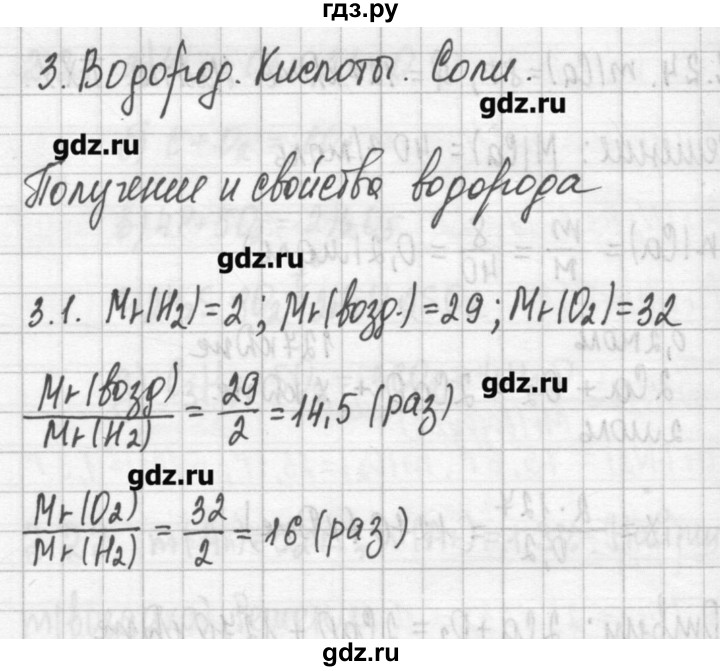 гдз.ру
3. Водород. Кислоты. Соли.
gdz.ru
gdz.ru
Получение и свойства водорода
gdz.ru
3.1. Mr(H₂)=2; Mr(возд.)=29; Mr(O₂)=32
gdz.ru
Mr(возд)/Mr(H₂) = 29/2 = 14,5 (раз)
gdz.ru
Mr(O₂)/Mr(H₂) = 32/2 = 16 (раз)
gdz.ru